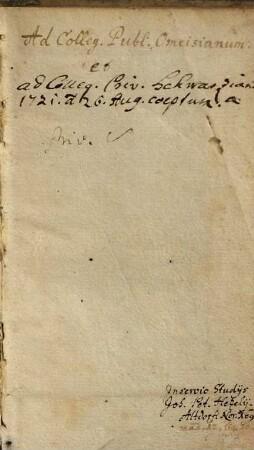 Ad Colleg. Publ. Omeisianum.
et
ad Colleg. Priv. Schwarzian
1721. d. 26. Aug. coeptum
Priv.
Inservio Studijs
Joh. Pet. Hezelij
Altdorf. Nor.